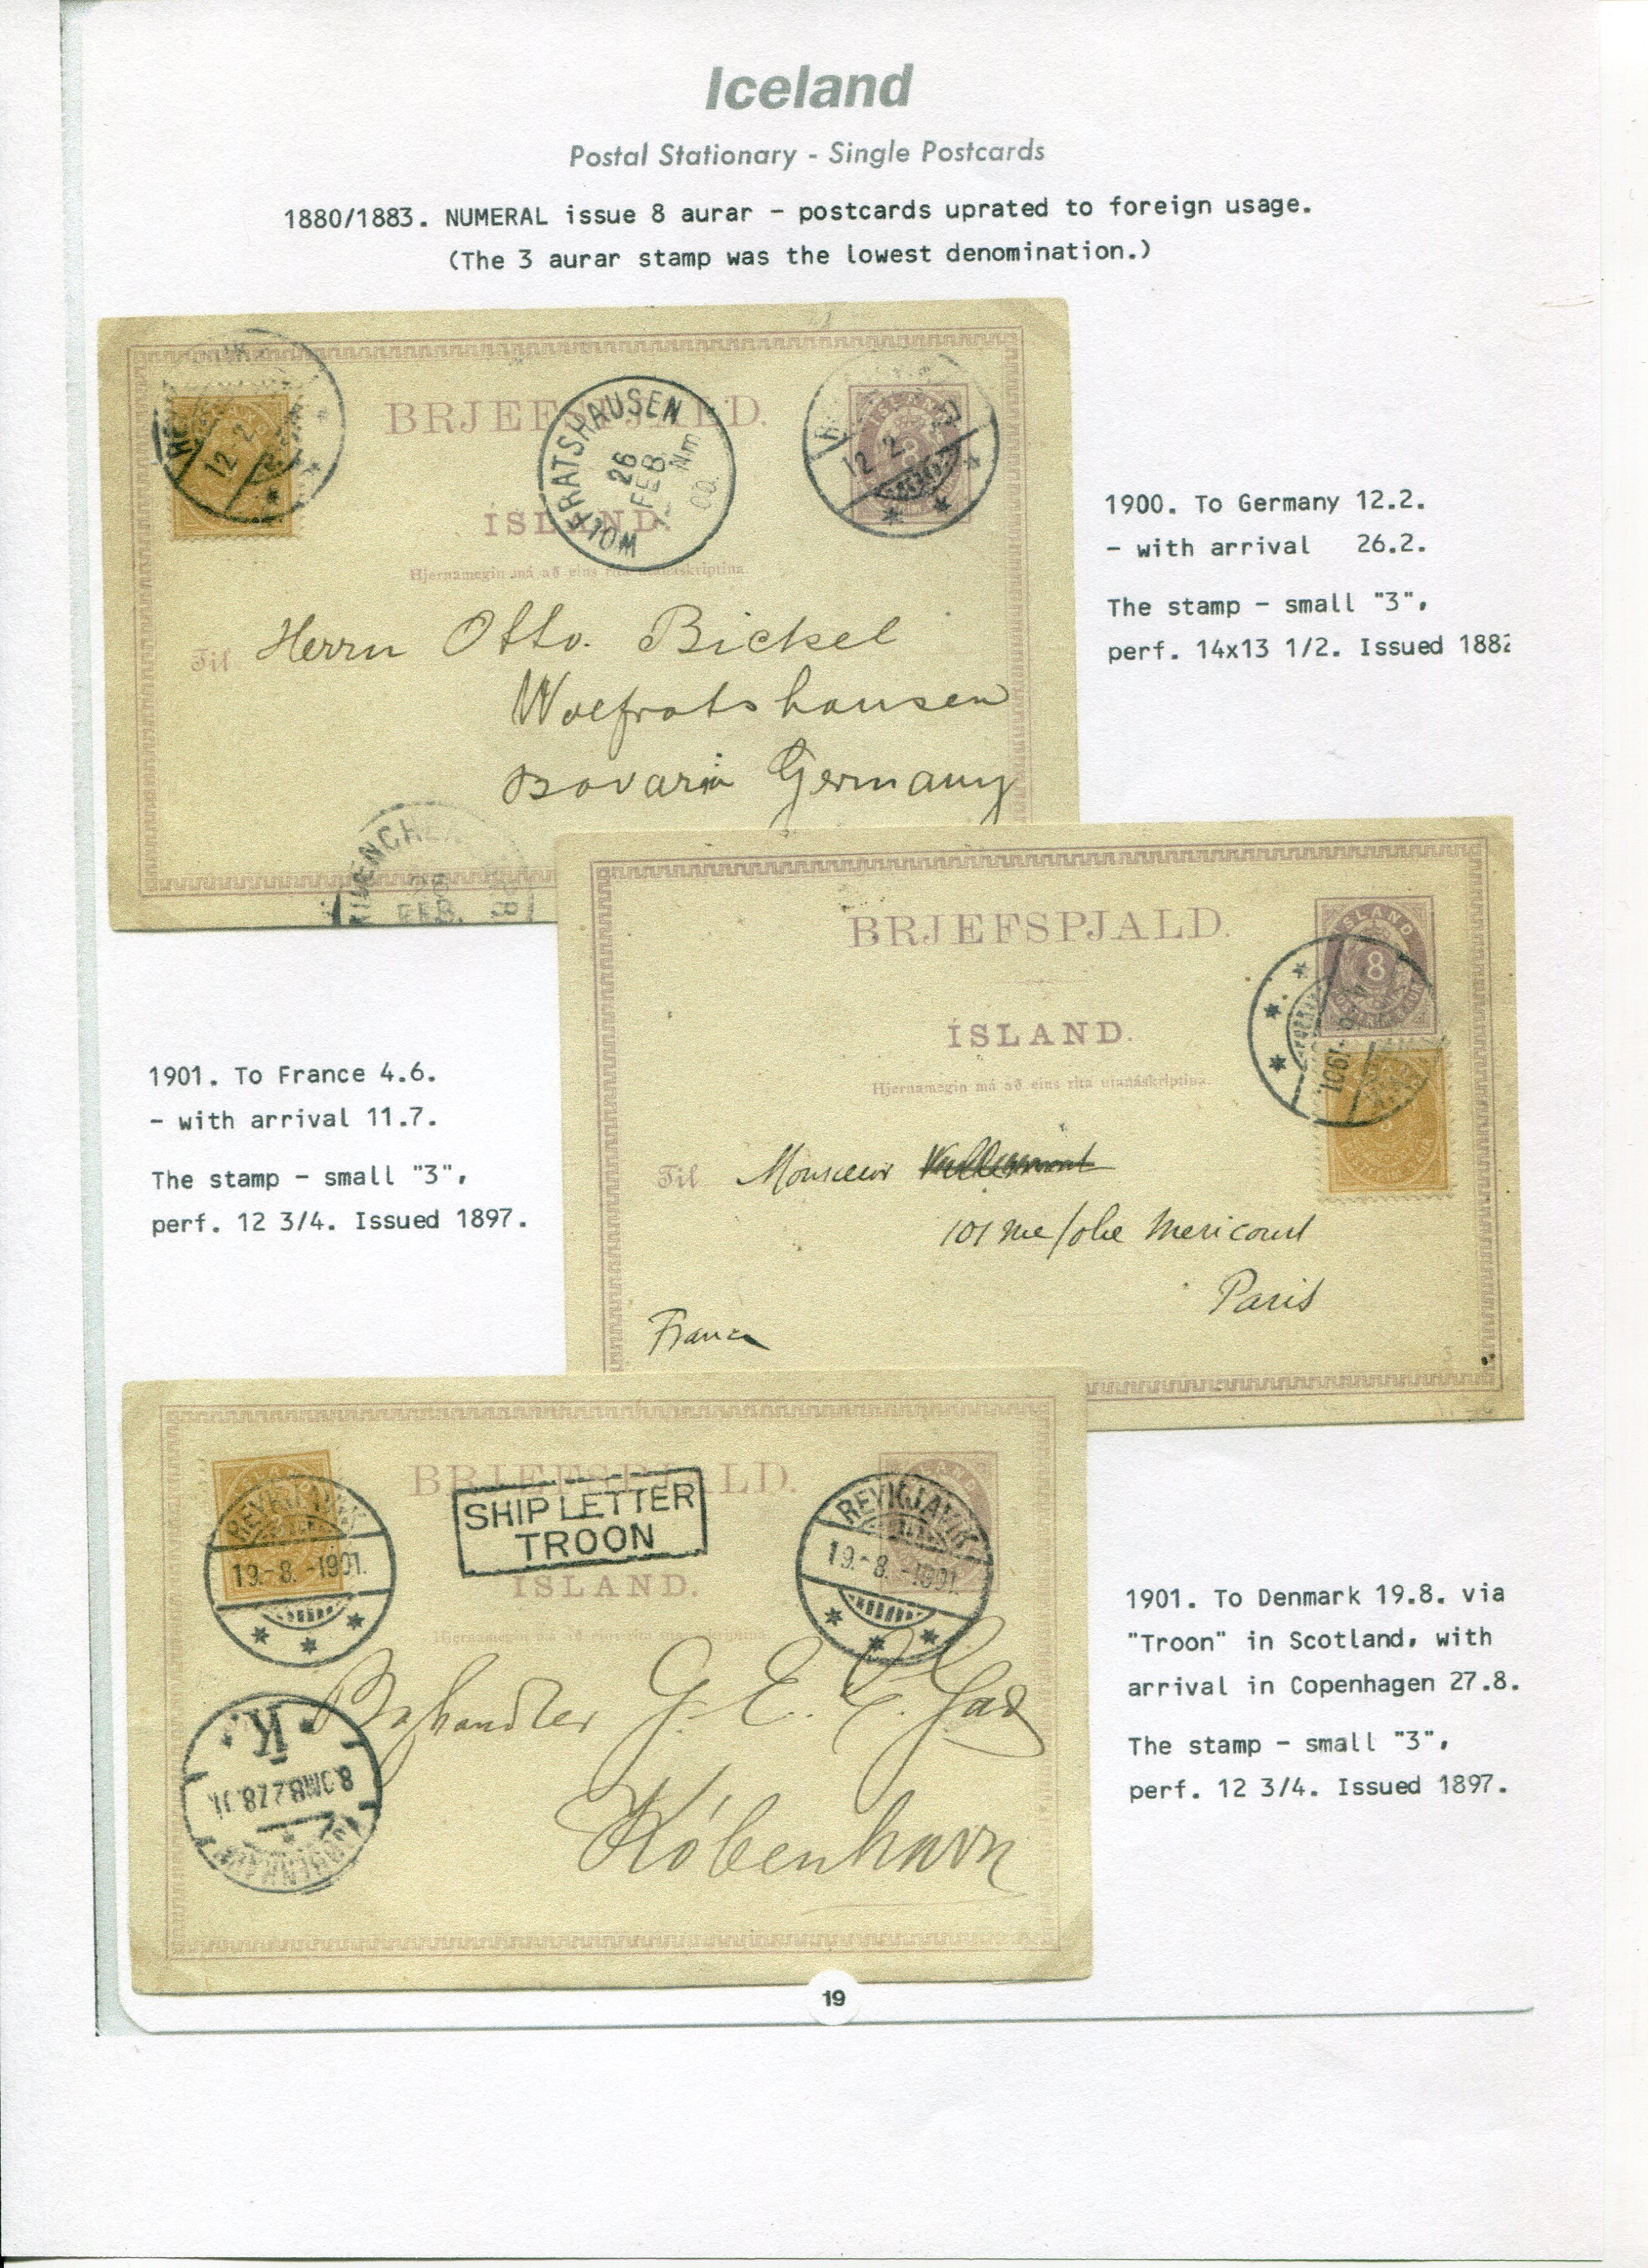 Iceland
Postal Stationary - Single Postcards
1880/1883. NUMERAL issue 8 aurar - postcards uprated to foreign usage.
(The 3 aurar stamp was the lowest denomination.)
12 2
BRJEFSPJALD.
ÍSLAND.
Hjernamegin má að eins rita utanáskriptina.
WOLFRATSHAUSEN
26
FEB.
Nm
00.
ISLAND
8
12 2
Til Herrn Otto. Bickel
Wolfratshausen
Bavaria Germany
MUENCHEN
FEB.
1900. To Germany 12.2.
- with arrival 26.2.
The stamp - small "3",
perf. 14x13 1/2. Issued 1882
BRJEFSPJALD.
ÍSLAND.
Hjernamegin má að eins rita utanáskriptina.
ISLAND
8
1901
Til Monsieur
101 rue folie Mericourt
Paris
France
1901. To France 4.6.
- with arrival 11.7.
The stamp - small "3",
perf. 12 3/4. Issued 1897.
BRJEFSPJALD.
ÍSLAND.
Hjernamegin má að eins rita utanáskriptina.
REYKJAVIK
19.-8.-1901.
SHIP LETTER
TROON
REYKJAVIK
19.-8.-1901.
Boghandler G. E. C. Gad
København
K.
KJØBENHAVN
8.OMB.27.8.01.
1901. To Denmark 19.8. via
"Troon" in Scotland, with
arrival in Copenhagen 27.8.
The stamp - small "3",
perf. 12 3/4. Issued 1897.
19